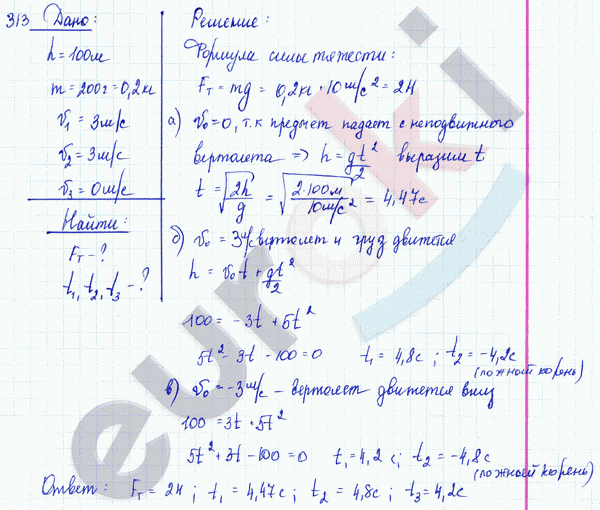 313 Дано:
h = 100м
m = 200г = 0,2кг
v₁ = 3м/с
v₂ = 3м/с
v₃ = 0м/с
Найти:
Fт - ?
t₁, t₂, t₃ - ?
Решение:
Формула силы тяжести:
Fт = mg = 0,2кг · 10м/с² = 2Н
а) v₀ = 0, т.к предмет падает с неподвижного
вертолета => h = gt²/2 выразим t
t = √(2h/g) = √(2·100м/10м/с²) = 4,47с
б) v₀ = 3м/с вертолет и груз движется
h = v₀t + gt²/2
100 = -3t + 5t²
5t² - 3t - 100 = 0 t₁ = 4,8с ; t₂ = -4,2с
(ложный корень)
в) v₀ = -3м/с - вертолет движется вниз
100 = 3t + 5t²
5t² + 3t - 100 = 0 t₁ = 4,2 с; t₂ = -4,8с
(ложный корень)
Ответ: Fт = 2Н ; t₁ = 4,47с ; t₂ = 4,8с ; t₃ = 4,2с
euroki